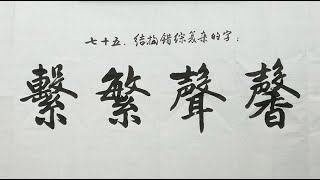 七十五、结构错综复杂的字：
繫繁聲馨